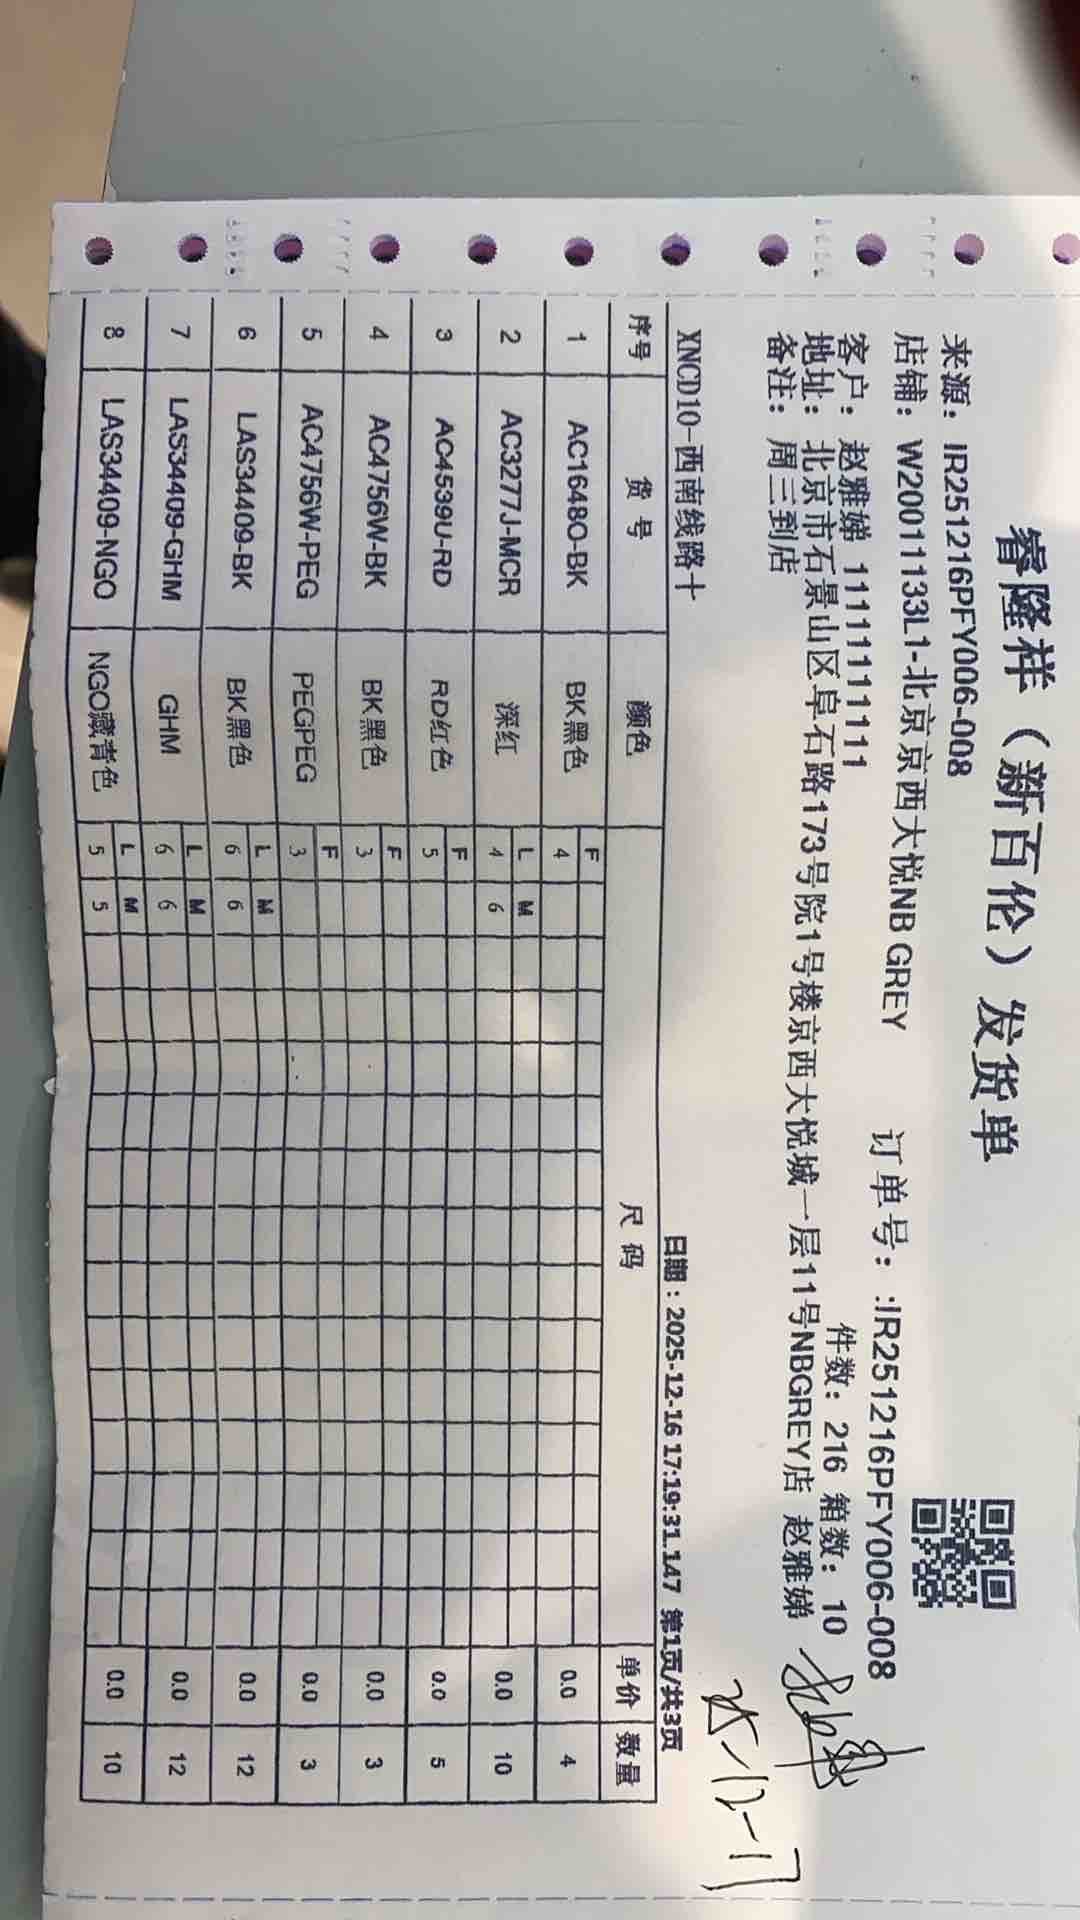 睿隆祥（新百伦）发货单
来源：IR251216PFY006-008
店铺：W20011133L1-北京京西大悦NB GREY 订单号：:IR251216PFY006-008
客户：赵雅娣 11111111111 件数：216 箱数：10
地址：北京市石景山区阜石路173号院1号楼京西大悦城一层11号NBGREY店 赵雅娣
备注：周三到店
25-12-17
XNCD10-西南线路十 日期：2025-12-16 17:19:31.147 第1页/共3页
序号 货号 颜色 尺码 单价 数量
1 AC1648O-BK BK黑色 F 4 0.0 4
2 AC3277J-MCR 深红 L M 4 6 0.0 10
3 AC4539U-RD RD红色 F 5 0.0 5
4 AC4756W-BK BK黑色 F 3 0.0 3
5 AC4756W-PEG PEGPEG F 3 0.0 3
6 LAS34409-BK BK黑色 L M 6 6 0.0 12
7 LAS34409-GHM GHM L M 6 6 0.0 12
8 LAS34409-NGO NGO藏青色 L M 5 5 0.0 10